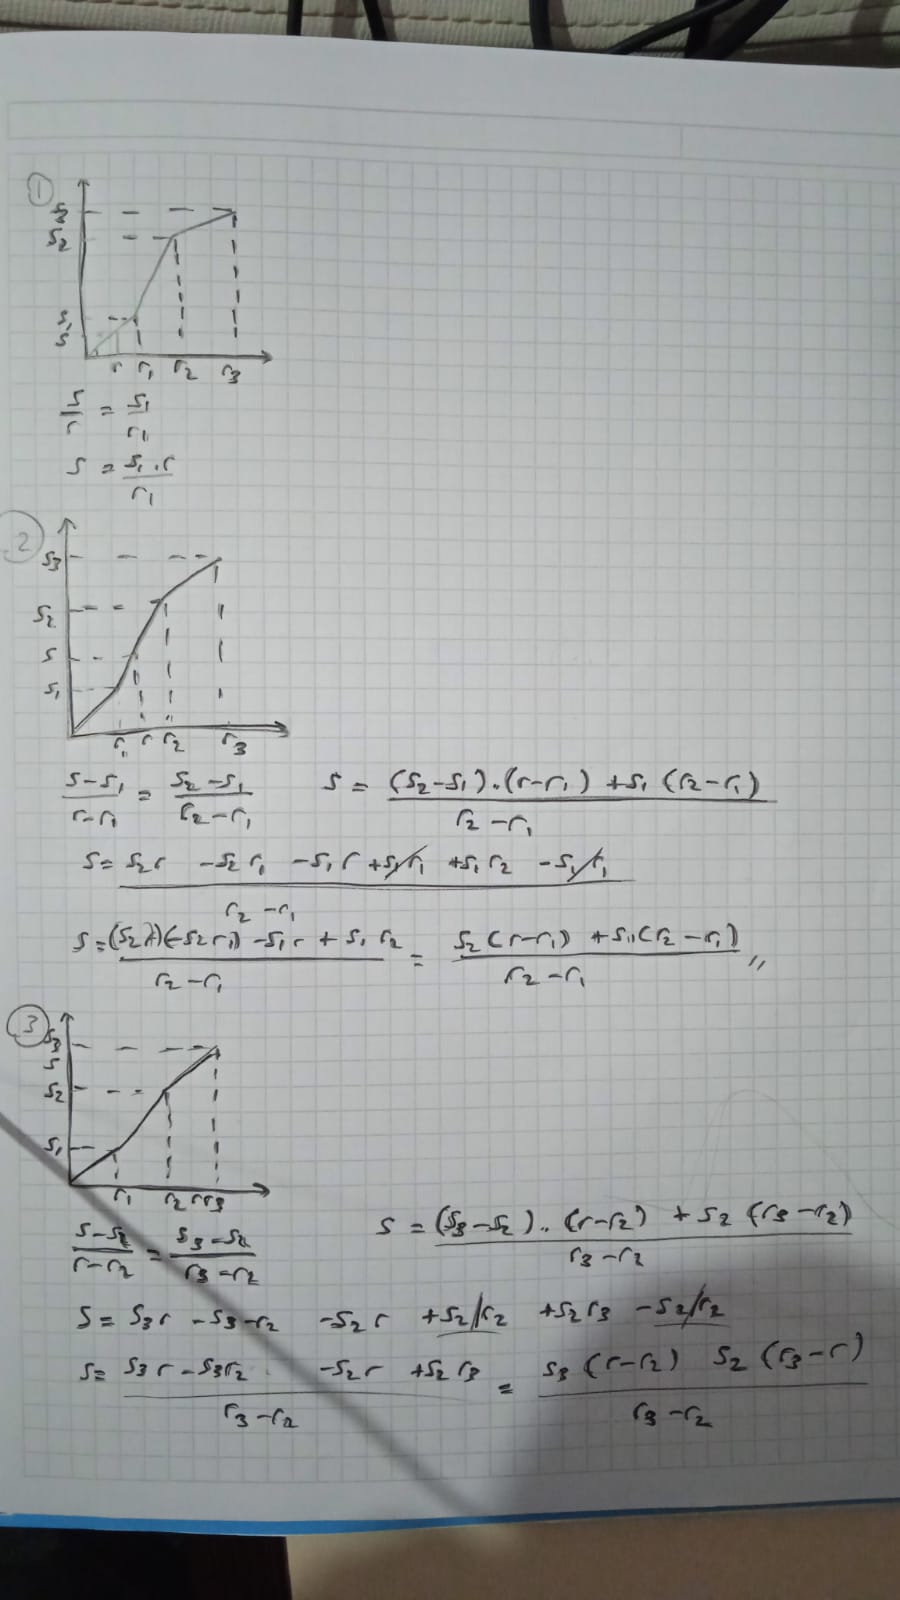 1
s3
s2
s1
s
r r1 r2 r3
s/r = s1/r1
s = s1.r/r1
2
s3
s2
s
s1
r1 r r2 r3
(s-s1)/(r-r1) = (s2-s1)/(r2-r1) s = ((s2-s1).(r-r1) +s1 (r2-r1))/(r2-r1)
s= (s2r -s2r1 -s1r +s1r1 +s1r2 -s1r1)/(r2-r1)
s=((s2r)(-s2r1) -s1r + s1r2)/(r2-r1) = (s2(r-r1) +s1(r2-r1))/(r2-r1) //
3
s3
s
s2
s1
r1 r2 r r3
(s-s2)/(r-r2) = (s3-s2)/(r3-r2) s = ((s3-s2).. (r-r2) + s2 (r3-r2))/(r3-r2)
s= s3r -s3-r2 -s2r +s2r2 +s2r3 -s2r2
s= (s3r -s3r2 -s2r +s2r3)/(r3-r2) = (s3 (r-r2) s2 (r3-r))/(r3-r2)